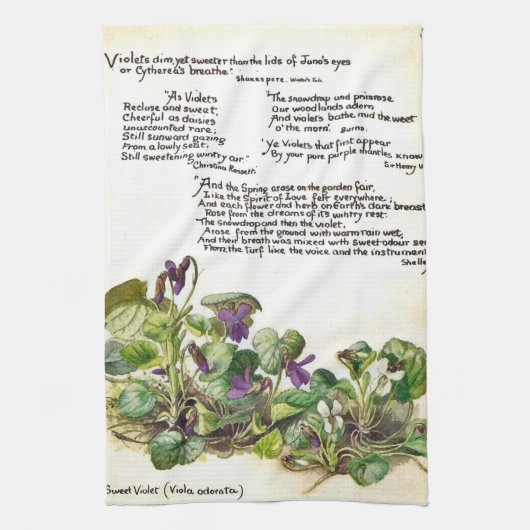 Violets dim, yet sweeter than the lids of Juno's eyes
or Cytherea's breathe."
Shakespere. Winter's Tale
"As Violets
Recluse and sweet,
Cheerful as daisies
unaccounted rare;
Still sunward gazing
From a lowly seat,
Still sweetening wintry air."
Christina Rossetti.
"The snowdrop and primrose
Our woodlands adorn
And violets bathe mid the weet
o' the morn." Burns.
'Ye Violets that first appear
By your pure purple mantles know
Sir Henry W
"And the Spring arose on the garden fair,
Like the Spirit of Love felt everywhere;
And each flower and herb on Earth's dark breast
Rose from the dreams of its wintry rest.
The snowdrop and then the violet,
Arose from the ground with warm rain wet,
And their breath was mixed with sweet odour sen
From the turf like the voice and the instrument
Shelley
Sweet Violet (Viola odorata)